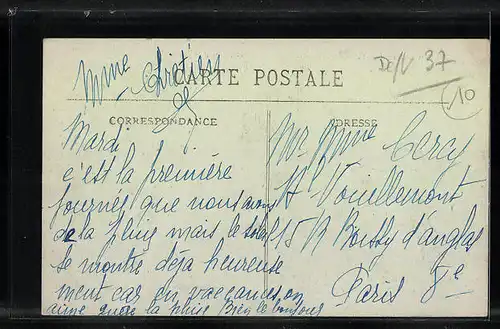 Mme Chrétien
De/V 37
10
CARTE POSTALE
CORRESPONDANCE
ADRESSE
Mardi
c'est la première
journée que nous avons
de la pluie mais le soleil
se montre déja heureuse
ment car en vacances, on
aime guère la pluie Bien le bonjour
Mr Mme Cercy
Ht Vouillemont
15 R Boissy d'anglas
Paris 8e